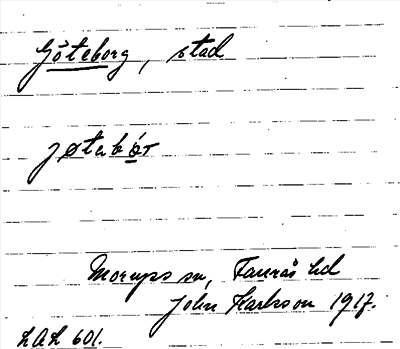 Göteborg, stad
jøtebór
Morups sn, Faurås hd
John Karlsson 1917.
LAL 601.